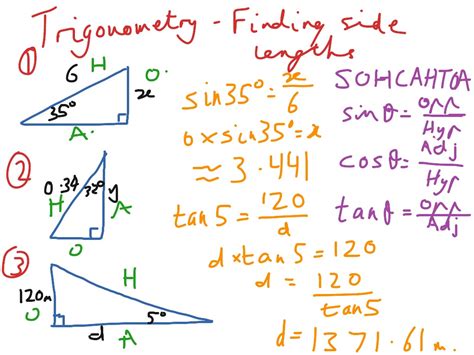 Trigonometry - Finding side
lengths
①
6 H O
x
35°
A
sin35° = x/6
6 x sin35° = x
≈ 3.441
SOHCAHTOA
sinθ = Opp/Hyp
cosθ = Adj/Hyp
tanθ = Opp/Adj
②
0.34 32° y
H A
O
tan5 = 120/d
d x tan5 = 120
d = 120/tan5
d = 1371.61m
③
H
120m
O
5°
d A